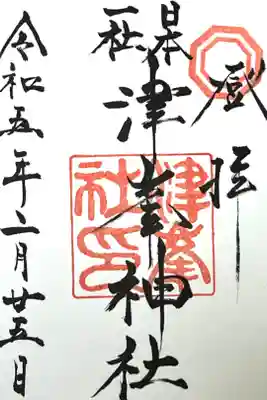 登拝
日本
一社
津峯神社
津峯
社印
令和五年二月廿五日